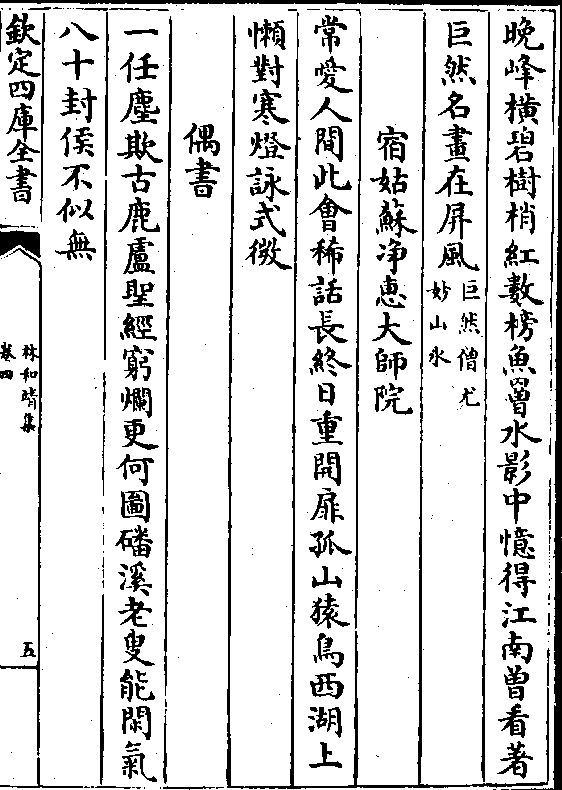 晚峰橫碧樹梢紅數榜魚罾水影中憶得江南曾看著
巨然名畫在屏風巨然僧尤
妙山水
宿姑蘇净惠大師院
常愛人間此會稀話長終日重開扉孤山猿鳥西湖上
懶對寒燈詠式微
偶書
一任塵欺古鹿盧聖經窮爛更何圖磻溪老叟能閑氣
八十封侯不似無
欽定四庫全書
林和靖集
卷四
五